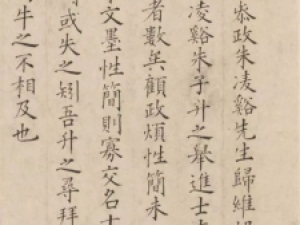 叅政朱凌谿先生歸維
凌谿朱子升之舉進士
者數矣顧政煩性簡未
文墨性簡則寡交名士
或失之矧吾升之尋拜
牛之不相及也